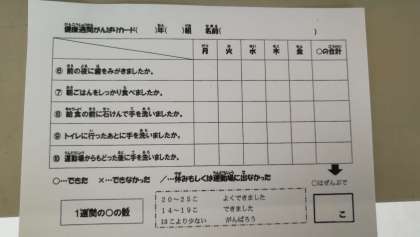 健康週間がんばりカード( )年( )組 名前( )
月 火 水 木 金 ○の合計
⑥ 朝の後に歯をみがきましたか。
⑦ 朝ごはんをしっかり食べましたか。
⑧ 給食の前に石けんで手を洗いましたか。
⑨ トイレに行ったあとに手を洗いましたか。
⑩ 運動場からもどった後に手を洗いましたか。
○…できた ×…できなかった /…休みもしくは運動場に出なかった
○はぜんぶで
1週間の○の数
20～25こ よくできました
14～19こ できました
はこより少ない がんばろう
こ